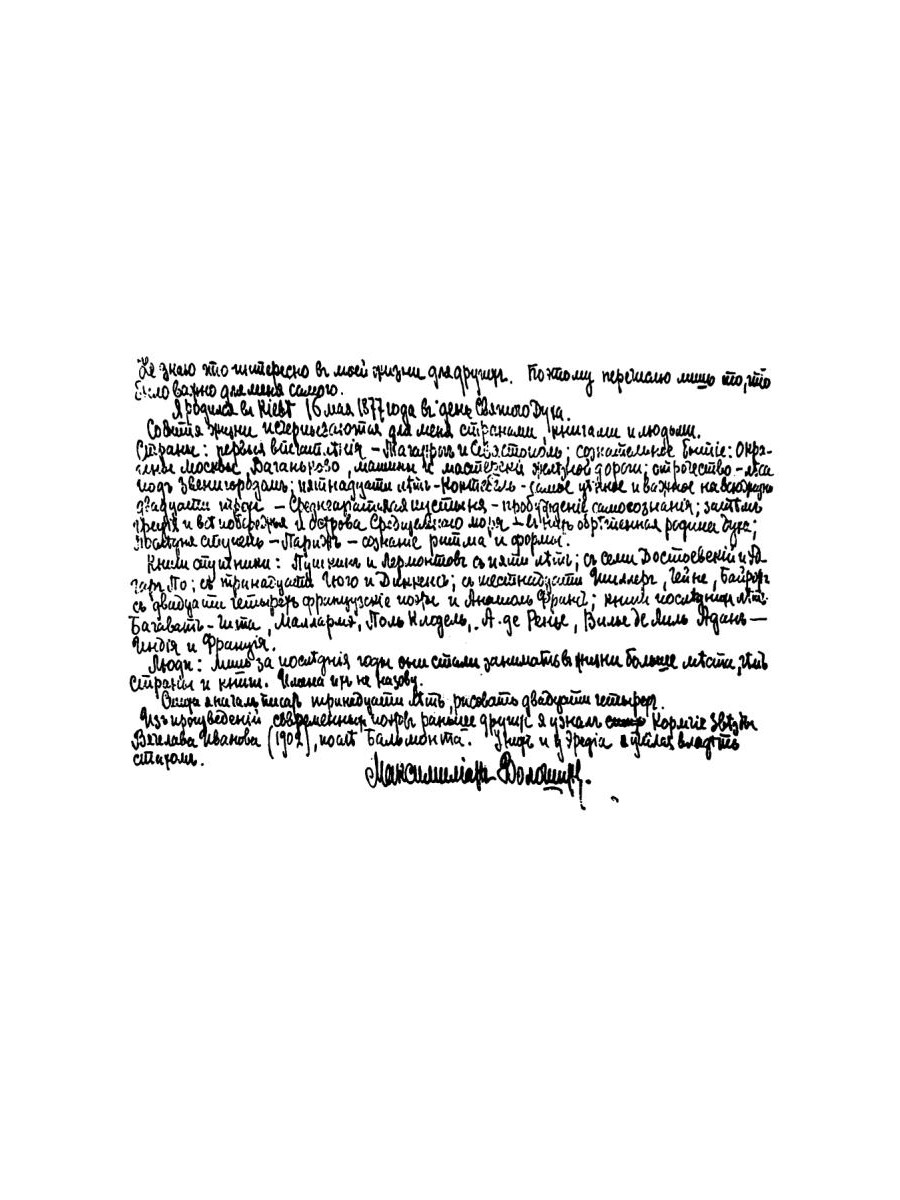 Не знаю что интересно въ моей жизни для другихъ. Поэтому перечислю лишь то, что
было важно для меня самого.
Я родился въ Кіевѣ 16 мая 1877 года въ день Святого Духа.
Событія жизни исчерпываются для меня странами, книгами и людьми.
Страны: первыя впечатлѣнія – Таганрогъ и Севастополь; сознательное бытіе: Окра-
ины Москвы, Ваганьково, машины и мастерскія желѣзной дороги; отрочество – лѣса
подъ Звенигородомъ; пятнадцати лѣтъ – Коктебель – самое цѣнное и важное на всю жизнь
двадцати трехъ – Среднеазіатская пустыня – пробужденіе самосознанія; затѣмъ
Греція и всѣ побережья и острова Средиземного моря – въ нихъ обрѣтенная родина духа;
послѣдняя ступень – Парижъ – сознаніе ритма и формы.
Книги спутники: Пушкинъ и Лермонтовъ съ пяти лѣтъ; съ семи Достоевскій и Эд-
гаръ По; съ тринадцати Гюго и Диккенсъ; съ шестнадцати Шиллеръ, Гейне, Байронъ
съ двадцати четырехъ французскіе поэты и Анатоль Франсъ; книги послѣднихъ лѣтъ:
Багаватъ-Гита, Маллармэ, Поль Клодель, А. де Ренье, Вилье де Лиль Аданъ –
Индія и Франція.
Люди: лишь за послѣднія годы они стали занимать въ жизни больше мѣста, чѣмъ
страны и книги. Имена ихъ не назову.
Стихи я началъ писать тринадцати лѣтъ, рисовать двадцати четырехъ.
Изъ произведеній современныхъ поэтовъ раньше другихъ я узналъ Кормчіе Звѣзды
Вячеслава Иванова (1902), послѣ Бальмонта. У нихъ и у Эредіа я учился владѣть
стихомъ.
Максимиліанъ Волошинъ.